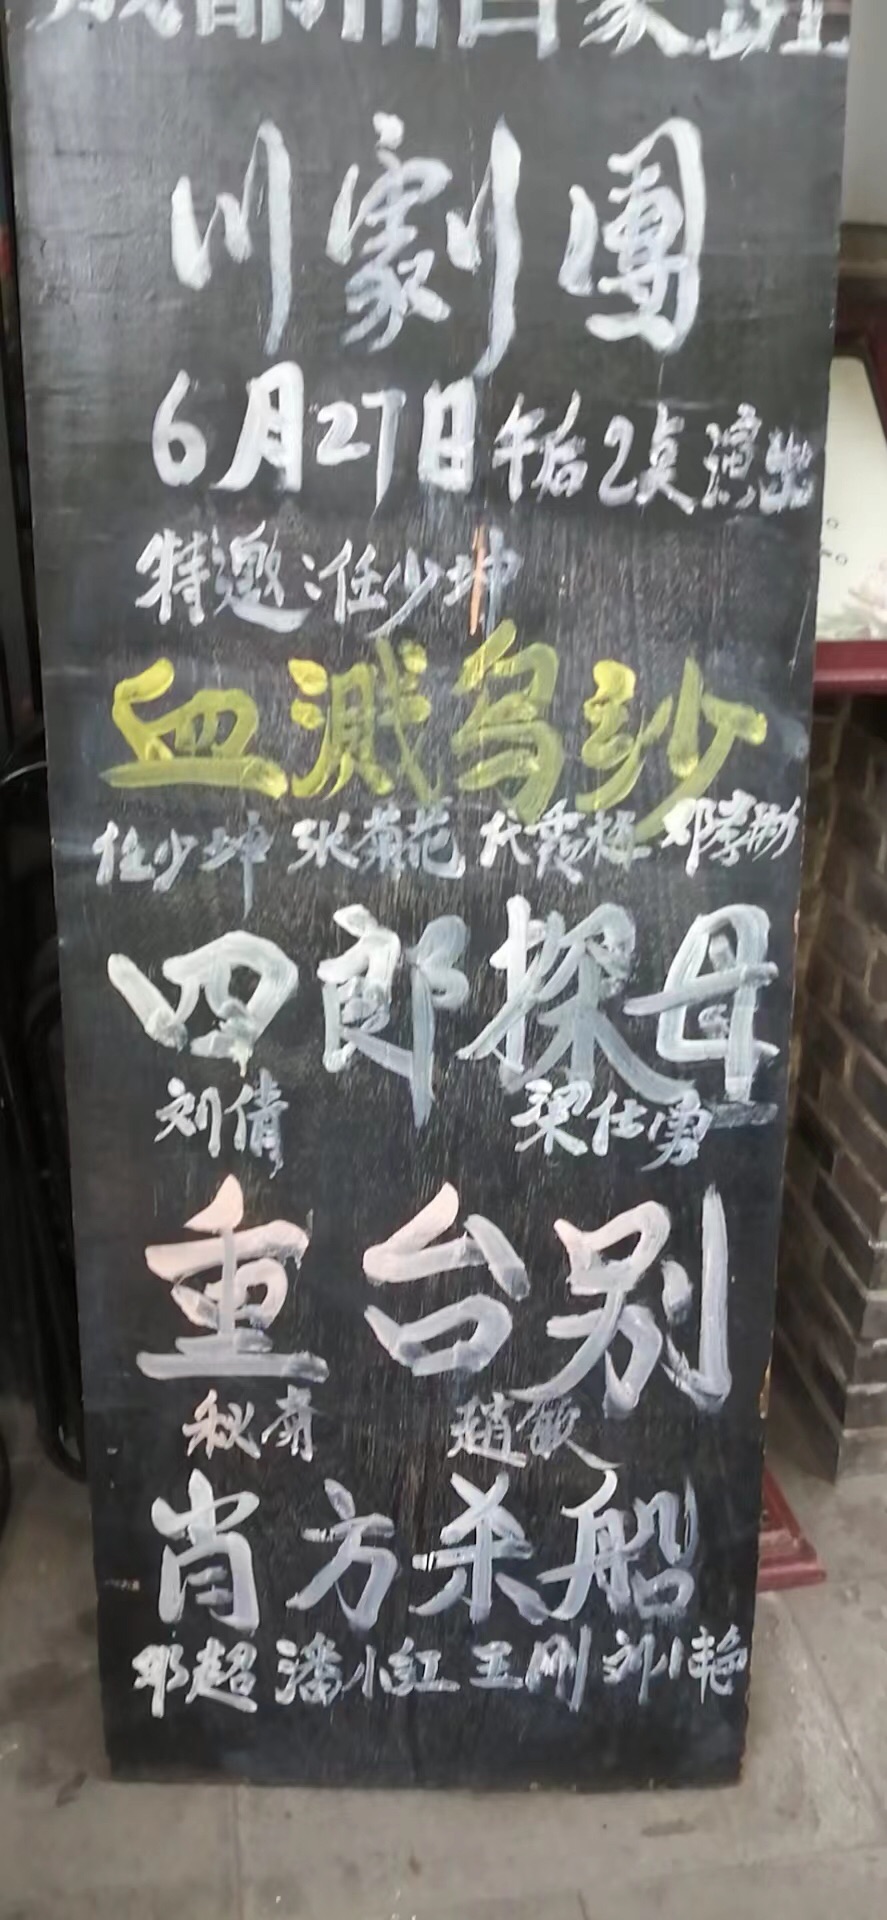 成都市
川劇團
6月27日午后2点演出
特邀:任少坤
血溅乌纱
任少坤 张菊花 代霞梅 邓孝彬
四郎探母
刘倩 梁仕勇
重台别
秋斋 趙敏
肖方杀船
邓超 潘小红 王刚 刘小艳